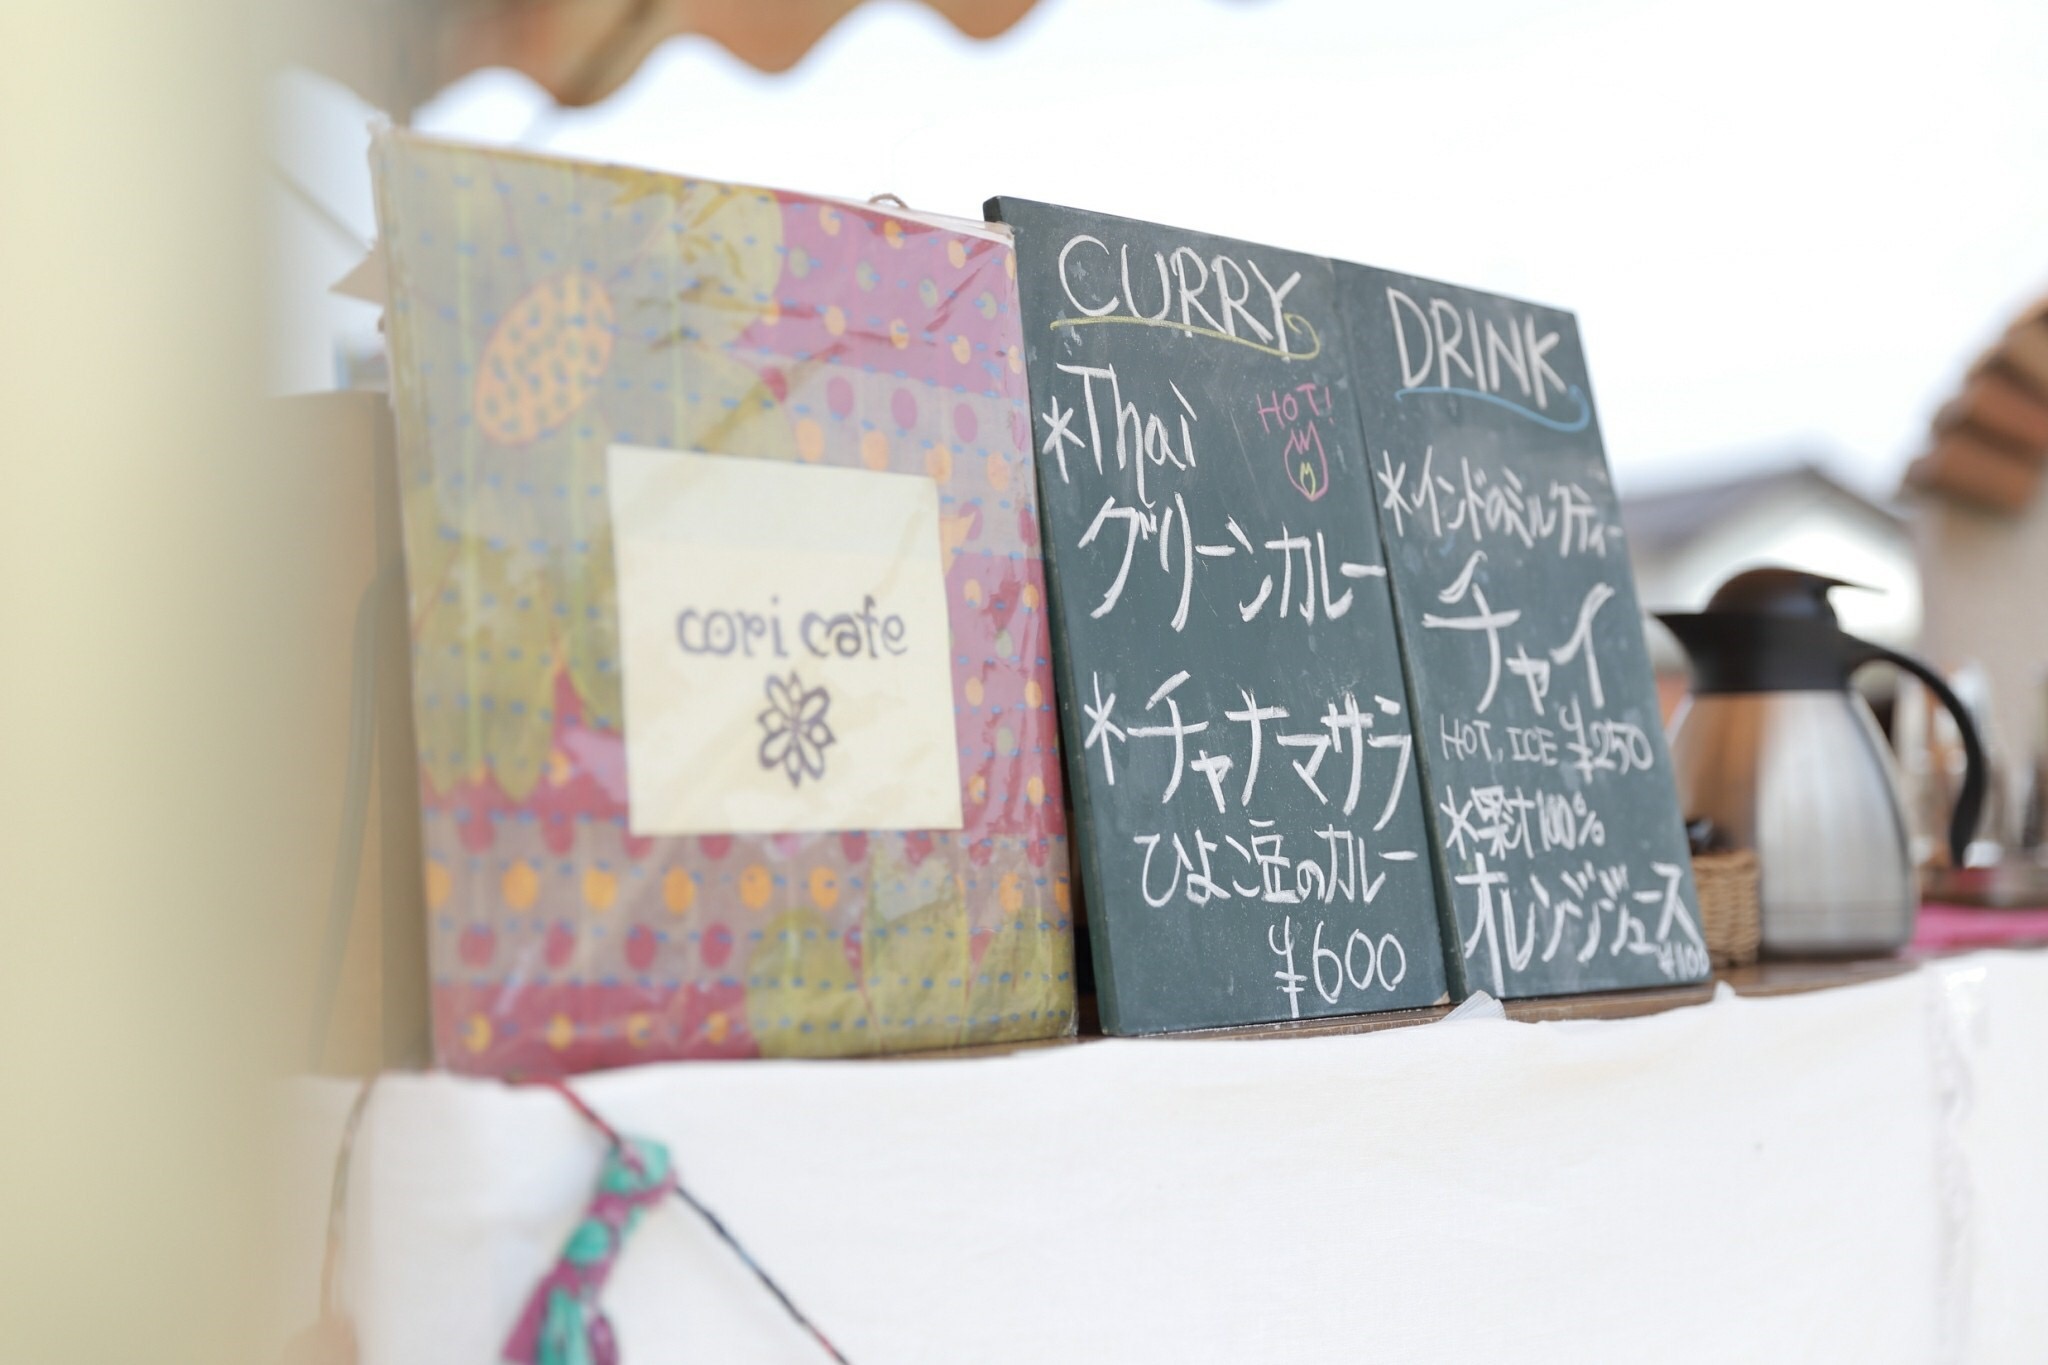 cori cafe
CURRY
*Thai
HOT!
グリーンカレー
*チャナマサラ
ひよこ豆のカレー
¥600
DRINK
*インドのミルクティー
チャイ
HOT, ICE ¥250
*果汁100%
オレンジジュース
¥100